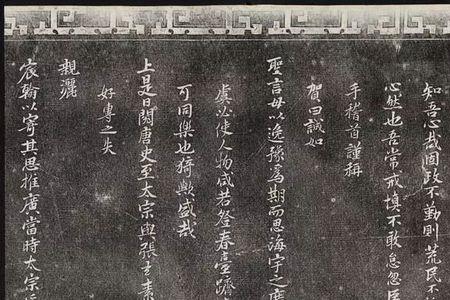 知吾心哉固政不勤則荒民不
心然也吾當戒慎不敢怠忽臣
手稽首謹稱
賀曰誠如
聖言毋以逸豫為期而思海宇之廣
虞必使人物咸若登春臺躋
可同樂也猗歟盛哉
上是日閱唐史至太宗與張玄素
好專之失
親灑
宸翰以寄其思推廣當時太宗